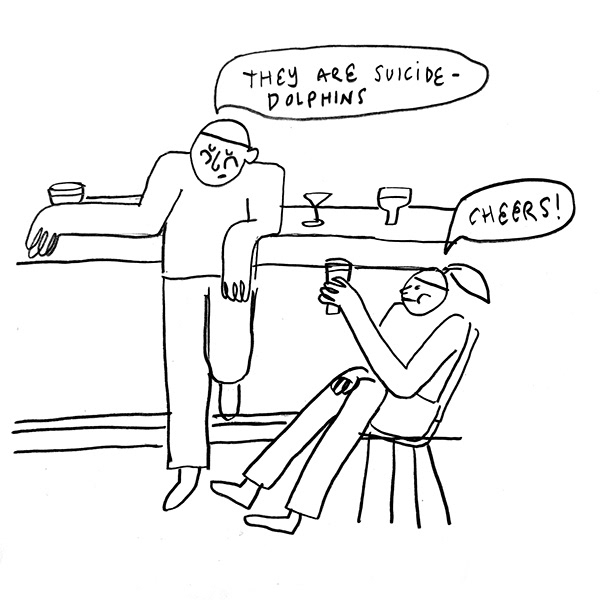 THEY ARE SUICIDE-
DOLPHINS
CHEERS!